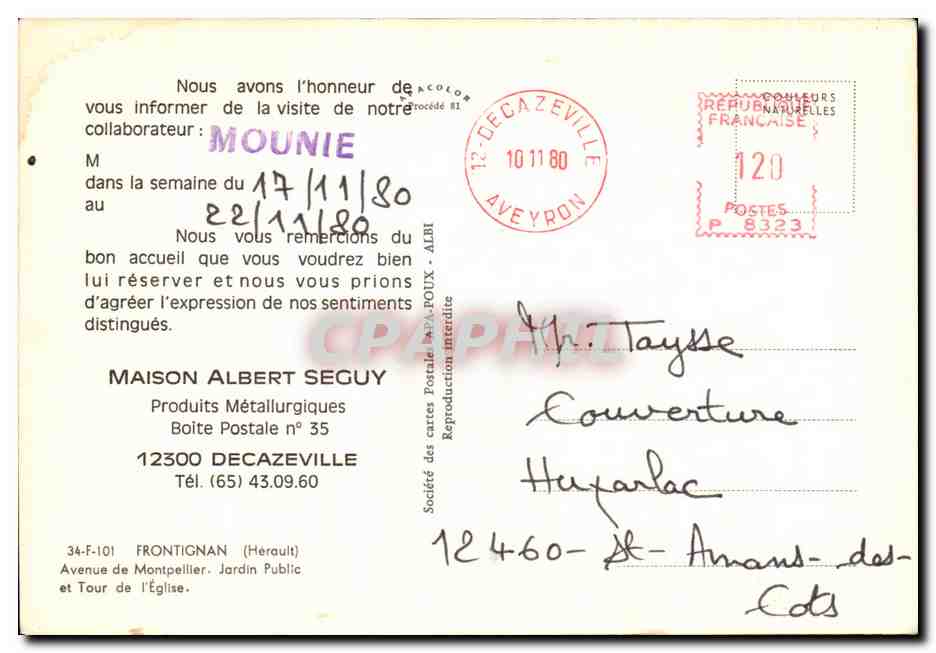 Nous avons l'honneur de
vous informer de la visite de notre
collaborateur :
MOUNIE
M
dans la semaine du 17/11/80
au 22/11/80
Nous vous remercions du
bon accueil que vous voudrez bien
lui réserver et nous vous prions
d'agréer l'expression de nos sentiments
distingués.
MAISON ALBERT SEGUY
Produits Métallurgiques
Boîte Postale n° 35
12300 DECAZEVILLE
Tél. (65) 43.09.60
34-F-101 FRONTIGNAN (Hérault)
Avenue de Montpellier. Jardin Public
et Tour de l'Église.
APACOLOR
Procédé 81
Société des cartes Postales APA-POUX - ALBI
Reproduction interdite
12-DECAZEVILLE
10 11 80
AVEYRON
COULEURS
NATURELLES
RÉPUBLIQUE
FRANÇAISE
120
POSTES
P 8323
CPAPHIL
Mr. Taysse
Couverture
Huparlac
12460 - St - Amans - des -
Cots